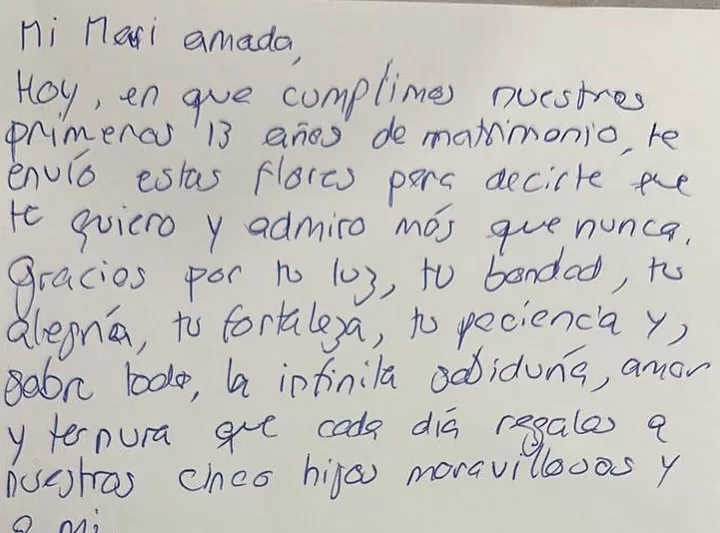 Mi Mari amada,
Hoy, en que cumplimos nuestros
primeros 13 años de matrimonio, te
envío estas flores para decirte que
te quiero y admiro más que nunca.
Gracias por tu luz, tu bondad, tu
alegría, tu fortaleza, tu paciencia y,
sobre todo, la infinita sabiduría, amor
y ternura que cada día regalas a
nuestras cinco hijas maravillosas y
a mi